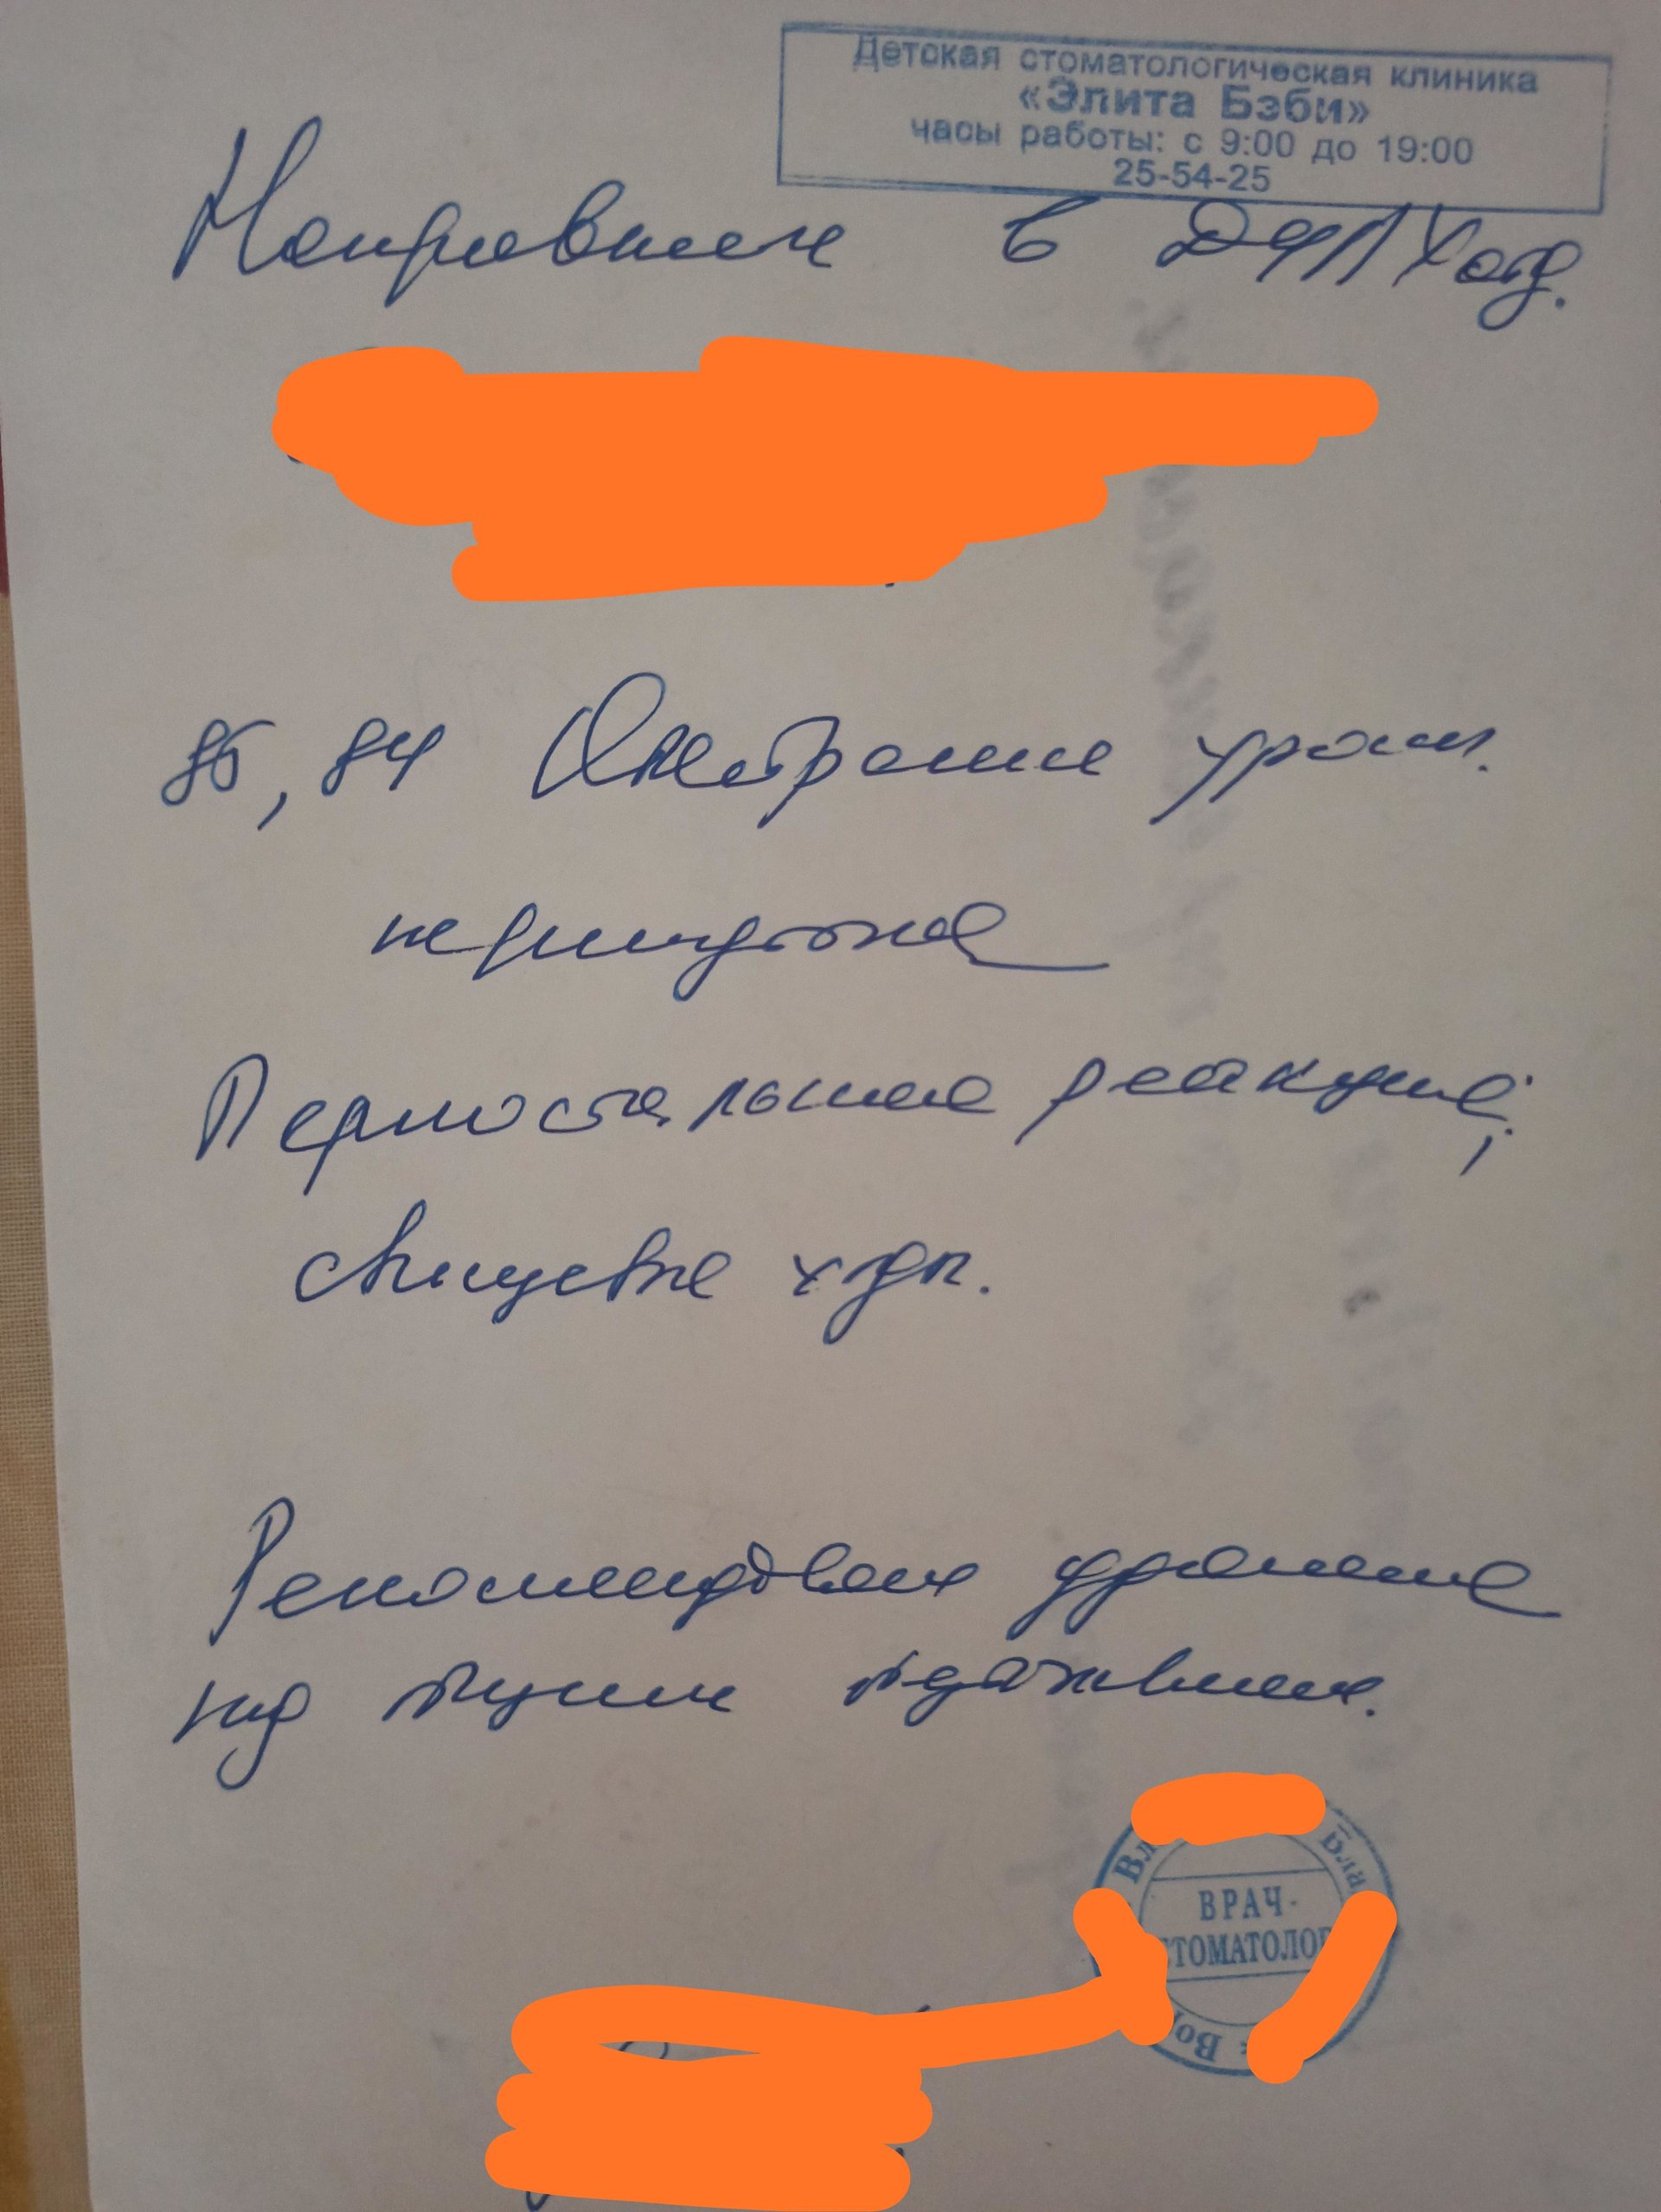 Детская стоматологическая клиника
«Элита Бэби»
часы работы: с 9:00 до 19:00
25-54-25
Направлен в ДЧЛХ отд.
85, 84 Обострение хрон.
периодонта
Периостальная реакция;
свищевые ход.
Рекомендован удаление
под общим
ВРАЧ-
СТОМАТОЛОГ